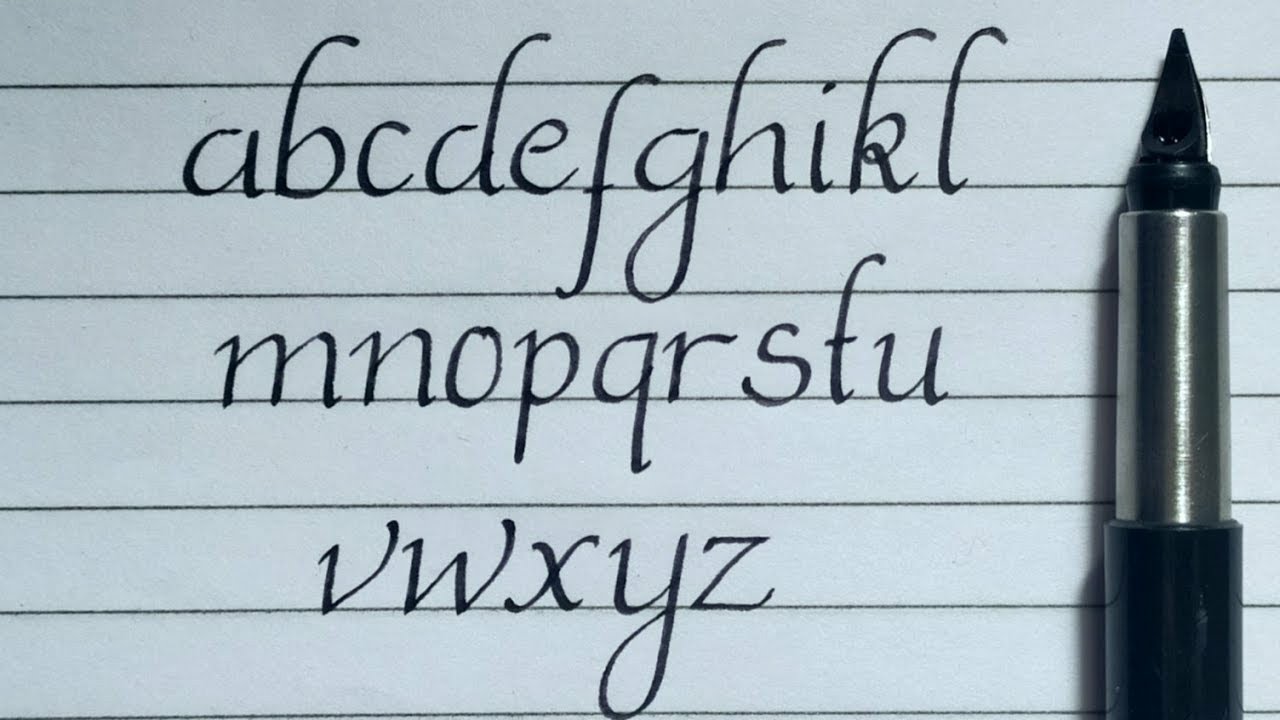 abcdefghikl
mnopqrstu
vwxyz